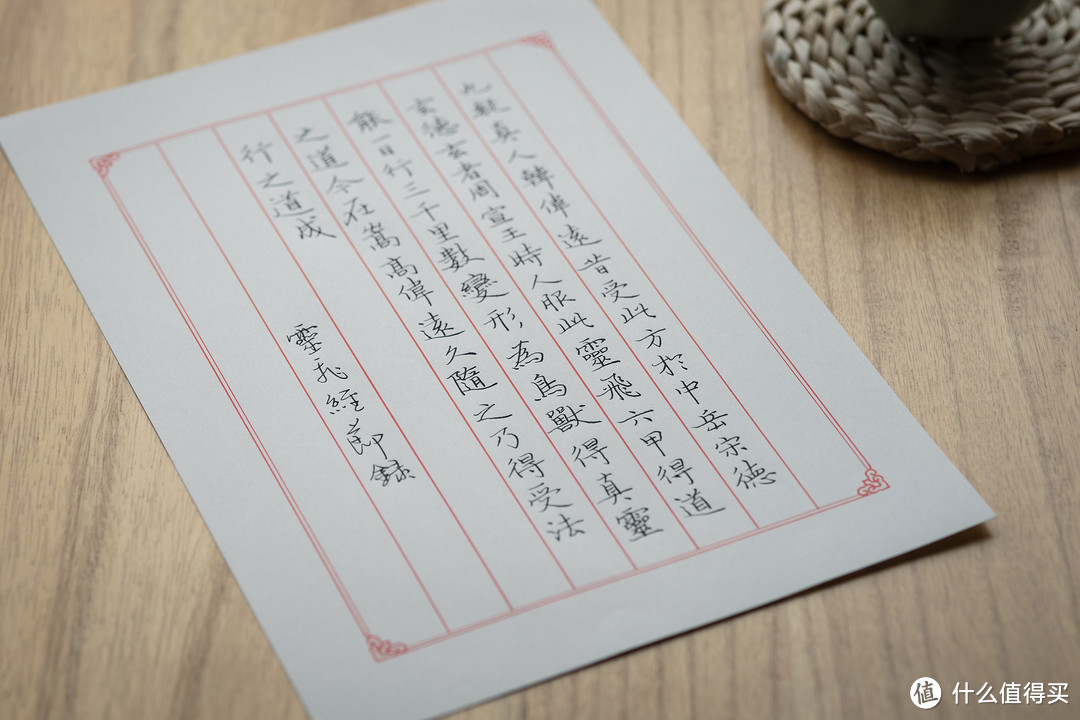 九疑真人韓偉遠昔受此方於中岳宋德
玄德玄者周宣王時人服此靈飛六甲得道
能一日行三千里數變形為鳥獸得真靈
之道今在嵩高偉遠久隨之乃得受法
行之道成
靈飛經節録
值 什么值得买